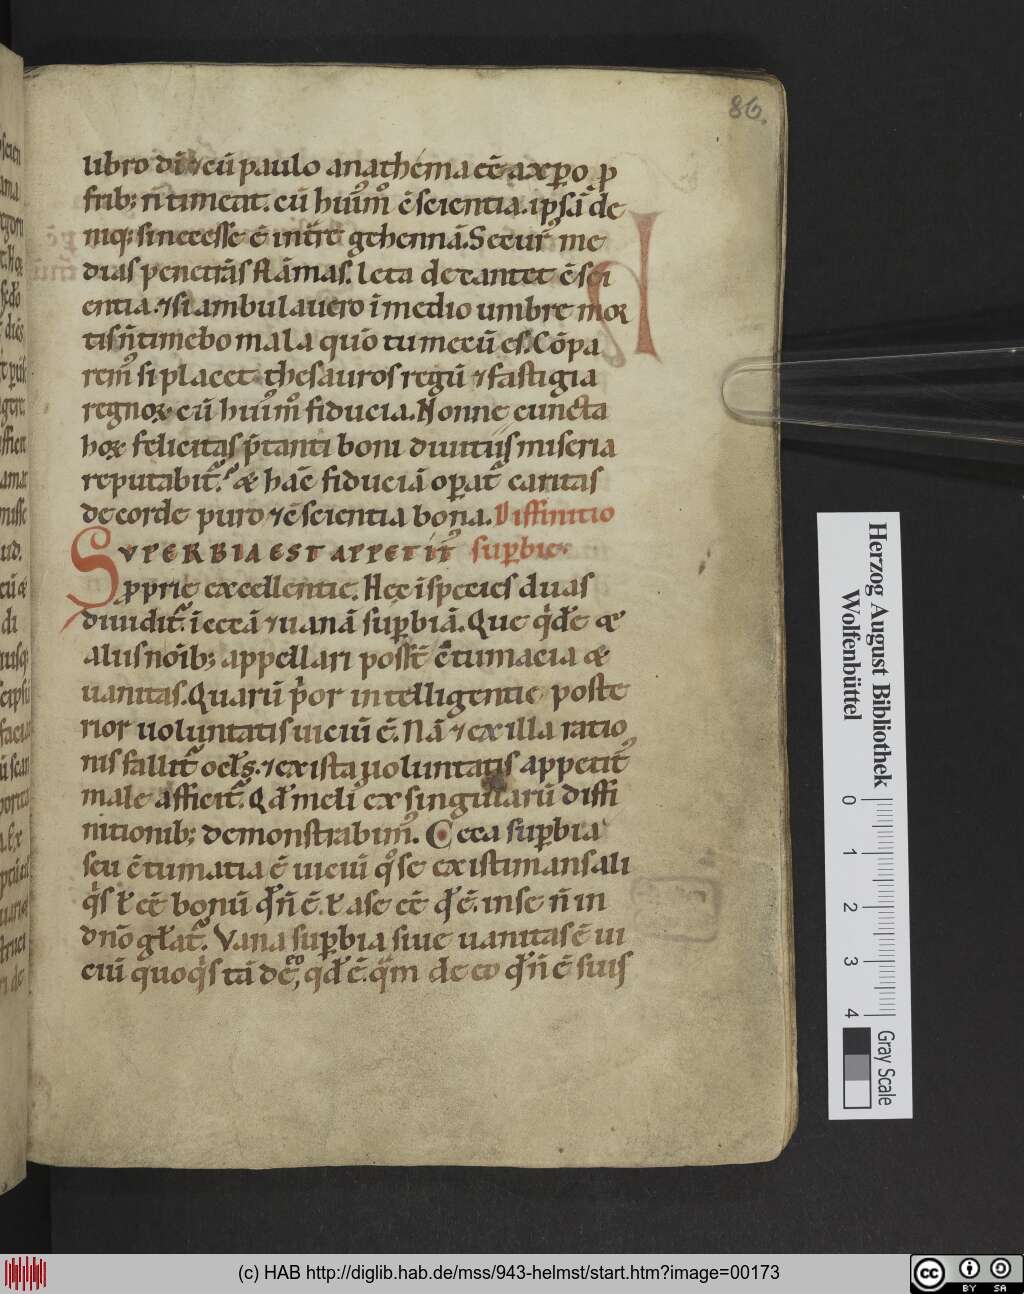 86.
libro dī ⁊ cū paulo anathema eē a xp̄o p̄
frib; ñ timeat. cū hui᷒m̊ c̄scientia. ipsā de
niq; si necesse ē int̄re gehennā. Secur᷒ me
dias penetrās flāmas. leta decantet c̄sci
entia. ⁊ si ambulauero ī medio umbre moꝛ
tis ñ timebo mala quō tu mecū es. Cōpa
rem᷒ si placet thesauros regū ⁊ fastigia
regnoꝝ cū hui᷒m̊ fiducia. Nonne cuncta
hoꝝ felicitas p̄tanti boni diuitiis miseria
reputabit᷑. Sꝫ hāc fiduciā oꝑat᷑ caritas
de corde puro ⁊ c̄scientia bona. Diffinitio
SVPERBIA EST APPETIT᷒ suꝑbie.
ꝓprie excellentie. Hec ī species duas
diuidit᷑. ī cecā ⁊ uanā suꝑbiā. Que qͥdē æ
aliis noīb; appellari possūt c̄tumacia &
uanitas. Quarū p̄or intelligentie poste
rior uoluntatis uiciū ē. Nā ⁊ ex illa ratio
nis fallit᷑ ocłs. ⁊ ex ista uoluntatis appetit᷒
male afficit᷑. Qđ meli᷒ ex singularū diffi
nitionib; demonstrabim᷒. Ceca suꝑbia
seu c̄tumatia ē uiciū qͦ se existimans ali
qͥs ł eē bonū qđ ñ ē. ł a se eē qđ ē. in se ñ in
dnō głat᷑. Vana suꝑbia siue uanitas ē ui
ciū quo qͥs tā de eo, qđ ē. qͣm de eo qđ ñ ē suis
Herzog August Bibliothek
Wolfenbüttel
0 1 2 3 4
Gray Scale
(c) HAB http://diglib.hab.de/mss/943-helmst/start.htm?image=00173
cc BY SA